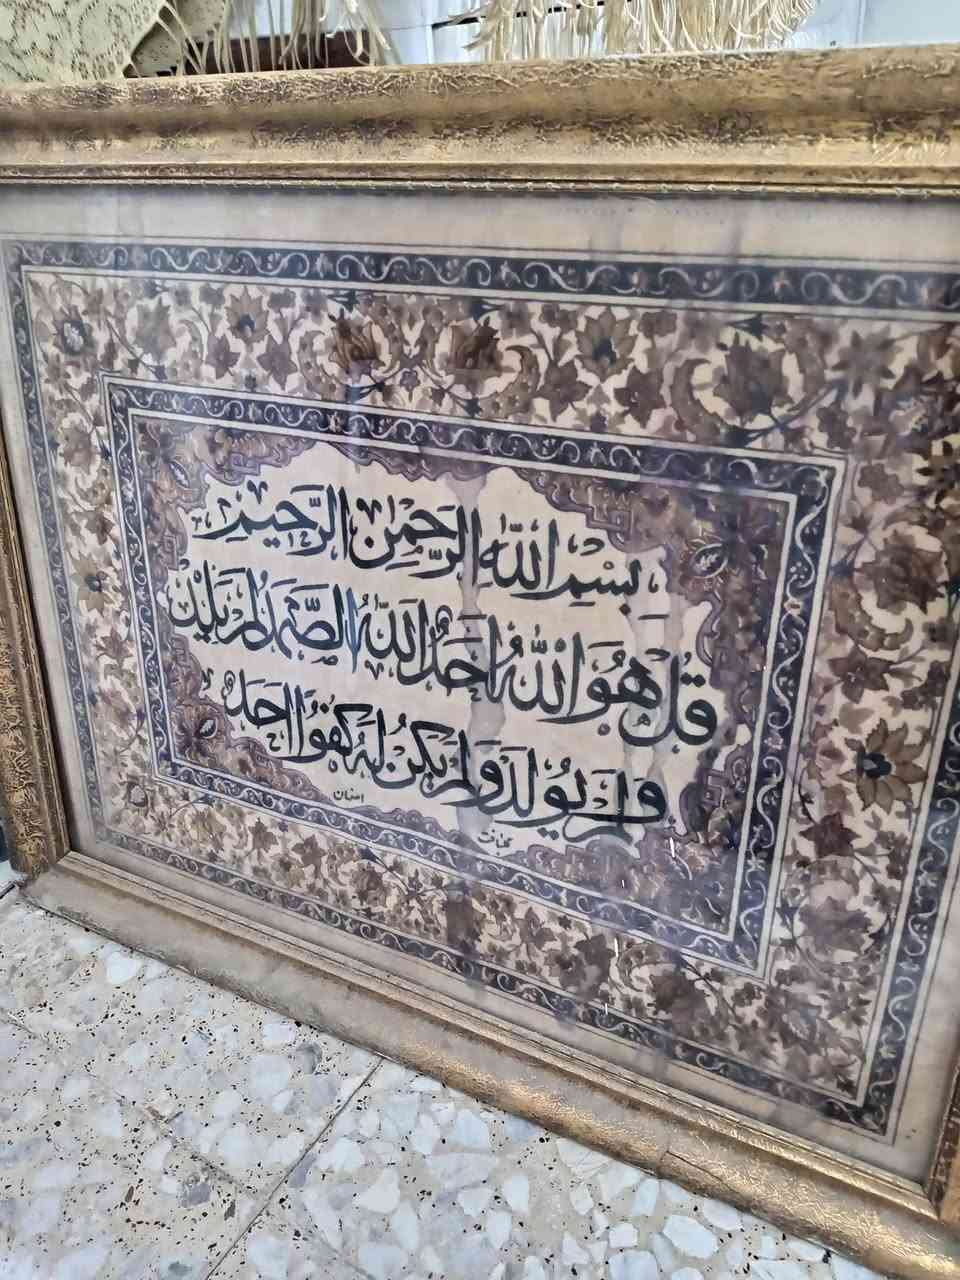 بِسْمِ اللّٰهِ الرَّحْمٰنِ الرَّحِيْمِ
قُلْ هُوَ اللّٰهُ اَحَدٌ اَللّٰهُ الصَّمَدُ لَمْ يَلِدْ
وَلَمْ يُولَدْ وَلَمْ يَكُنْ لَهُ كُفُوًا اَحَدٌ